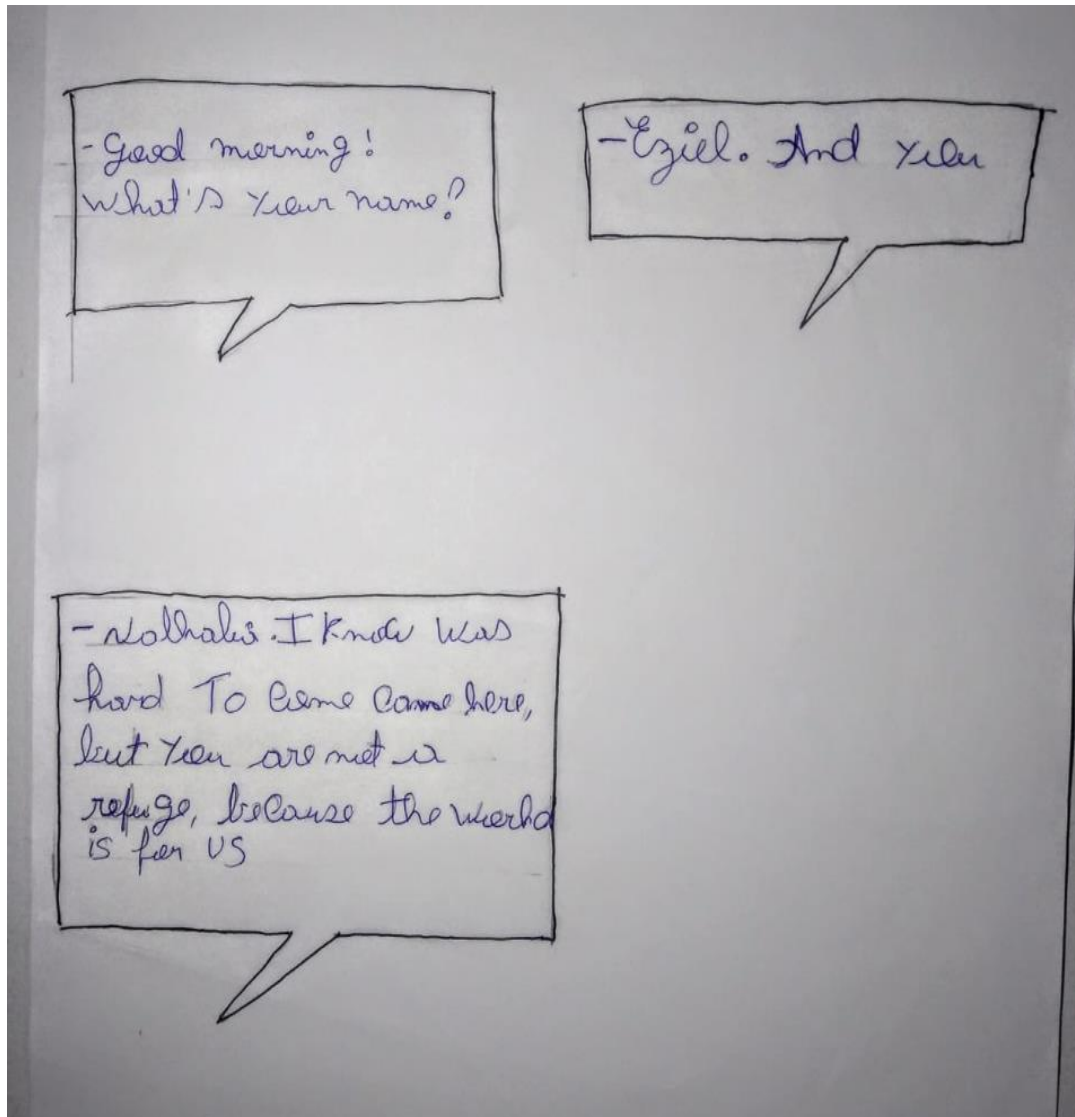 - Good morning!
What's your name?
- Eziel. And you
- Nathalis. I know was
hard To come came here,
but you are not a
refuge, because the world
is for US